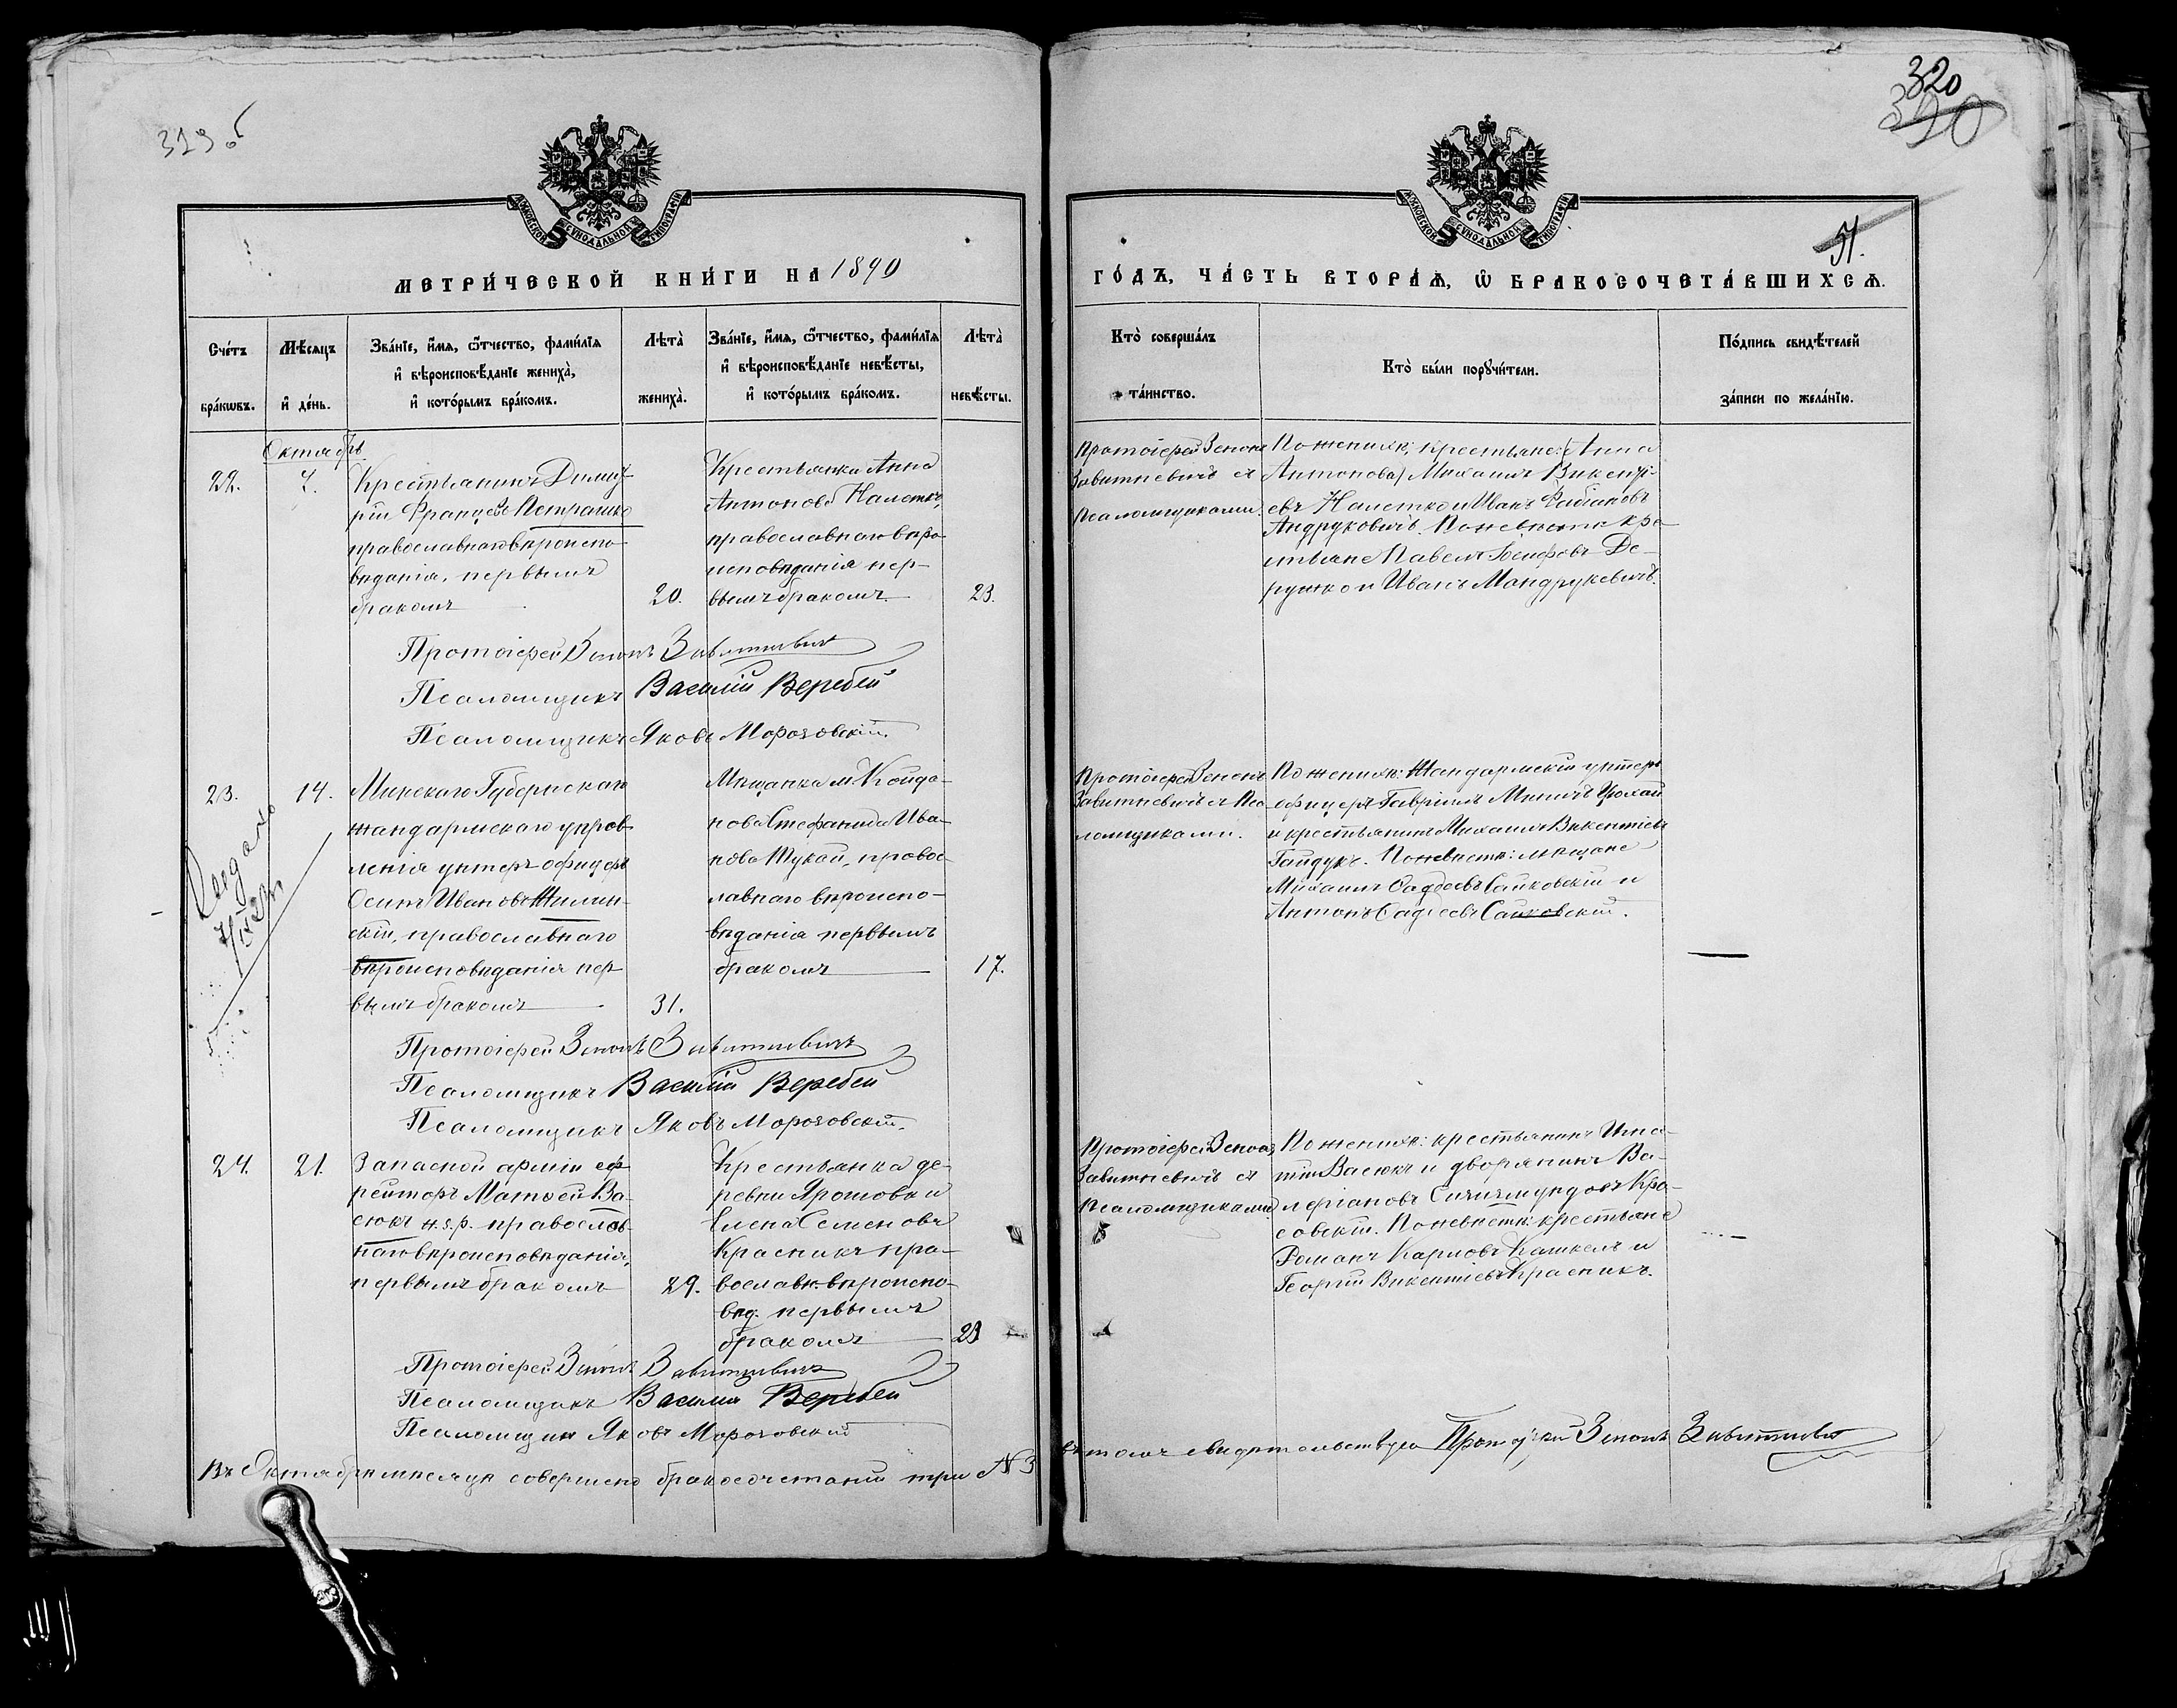 319 об
320
320
51.
МОСКОВСКОЙ СѴНОДАЛЬНОЙ ТИПОГРАФІИ
МОСКОВСКОЙ СѴНОДАЛЬНОЙ ТИПОГРАФІИ
МЕТРИ́ЧЕСКОЙ КНИ́ГИ НА 1890
ГО́ДЪ, ЧА́СТЬ ВТОРА́Ѧ, Ѽ БРАКОСОЧЕТА́ВШИХСѦ.
Сче́тъ бра́кѡвъ.
Мѣ́сяцъ и҆ де́нь.
Зва́нїе, и҆́мѧ, ѻ҆́тчество, фами́лїѧ
и҆ вѣроисповѣ́данїе жениха̀,
и҆ кото́рымъ бра́комъ.
Лѣта̀ жениха̀.
Зва́нїе, и҆́мѧ, ѻ҆́тчество, фами́лїѧ
и҆ вѣроисповѣ́данїе невѣ́сты,
и҆ кото́рымъ бра́комъ.
Лѣта̀ невѣ́сты.
Кто̀ соверша́лъ
та́инство.
Кто̀ бы́ли порꙋчи́тели.
По́дпись свидѣ́телей
за́писи по жела́нїю.
Октябрь
22.
7.
Крестьянинъ Димит-
рій Францевъ Петрашко
православнаго вѣроиспо-
вѣданія, первымъ
бракомъ
20.
Крестьянка Анна
Антонова Налетко,
православнаго вѣро-
исповѣданія пер-
вымъ бракомъ.
23.
Протоіерей Зенонъ
Завитневичъ съ
Псаломщиками.
По женихѣ: крестьяне: (Анна
Антонова) Михаилъ Викентi-
евъ Налетко и Иванъ Фабіановъ
Андруковичъ. По невѣстѣ кре-
стьяне Павелъ Іосифовъ Де-
ружко и Иванъ Мандрукевичъ.
Протоіерей Зенонъ Завитневичъ
Псаломщикъ Василій Веребей
Псаломщикъ Яковъ Морозовскій.
23.
14.
Минскаго Губернскаго
жандармскаго управ-
ленія унтеръ офицеръ
Осипъ Ивановъ Жилин-
скій, православнаго
вѣроисповѣданія пер-
вымъ бракомъ
31.
Мѣщанка м. Койда-
нова Стефанида Ива-
нова Тукай, правос-
лавнаго вѣроиспо-
вѣданія первымъ
бракомъ
17.
Протоіерей Зенонъ
Завитневичъ съ Пса-
ломщиками.
По женихѣ: Жандармскій унтеръ
офицеръ Гавріилъ Мининъ
и крестьянинъ Михаилъ Викентіевъ
Гайдукъ. По невѣстѣ: мѣщане
Михаилъ Фаддеевъ Санковскій и
Антонъ Фаддеевъ Санковскій.
Протоіерей Зенонъ Завитневичъ
Псаломщикъ Василій Веребей
Псаломщикъ Яковъ Морозовскій.
24.
21.
Запасной арміи еф-
рейторъ Матѳей Ва-
сюкъ н.з.р. православ-
наго вѣроисповѣданія,
первымъ бракомъ
29.
Крестьянка де-
ревни Ярошовки
Елена Семенова
Красникъ пра-
вославн. вѣроиспо-
вѣд. первымъ
бракомъ
23
Протоіерей Зенонъ
Завитневичъ съ
Псаломщиками
По женихѣ: крестьянинъ Игна-
тій Васюкъ и дворянинъ Ва-
леріановъ Сигизмундовъ Кра-
совскій. По невѣстѣ: крестьяне
Романъ Карповъ Кашкель и
Георгій Викентіевъ Красникъ.
Протоіерей Зенонъ Завитневичъ
Псаломщикъ Василій Веребей
Псаломщикъ Яковъ Морозовскій
Въ Октябрѣ мѣсяцѣ совершено бракосочетаній три № 3
въ томъ свидѣтельствую Протоіерей Зенонъ Завитневичъ